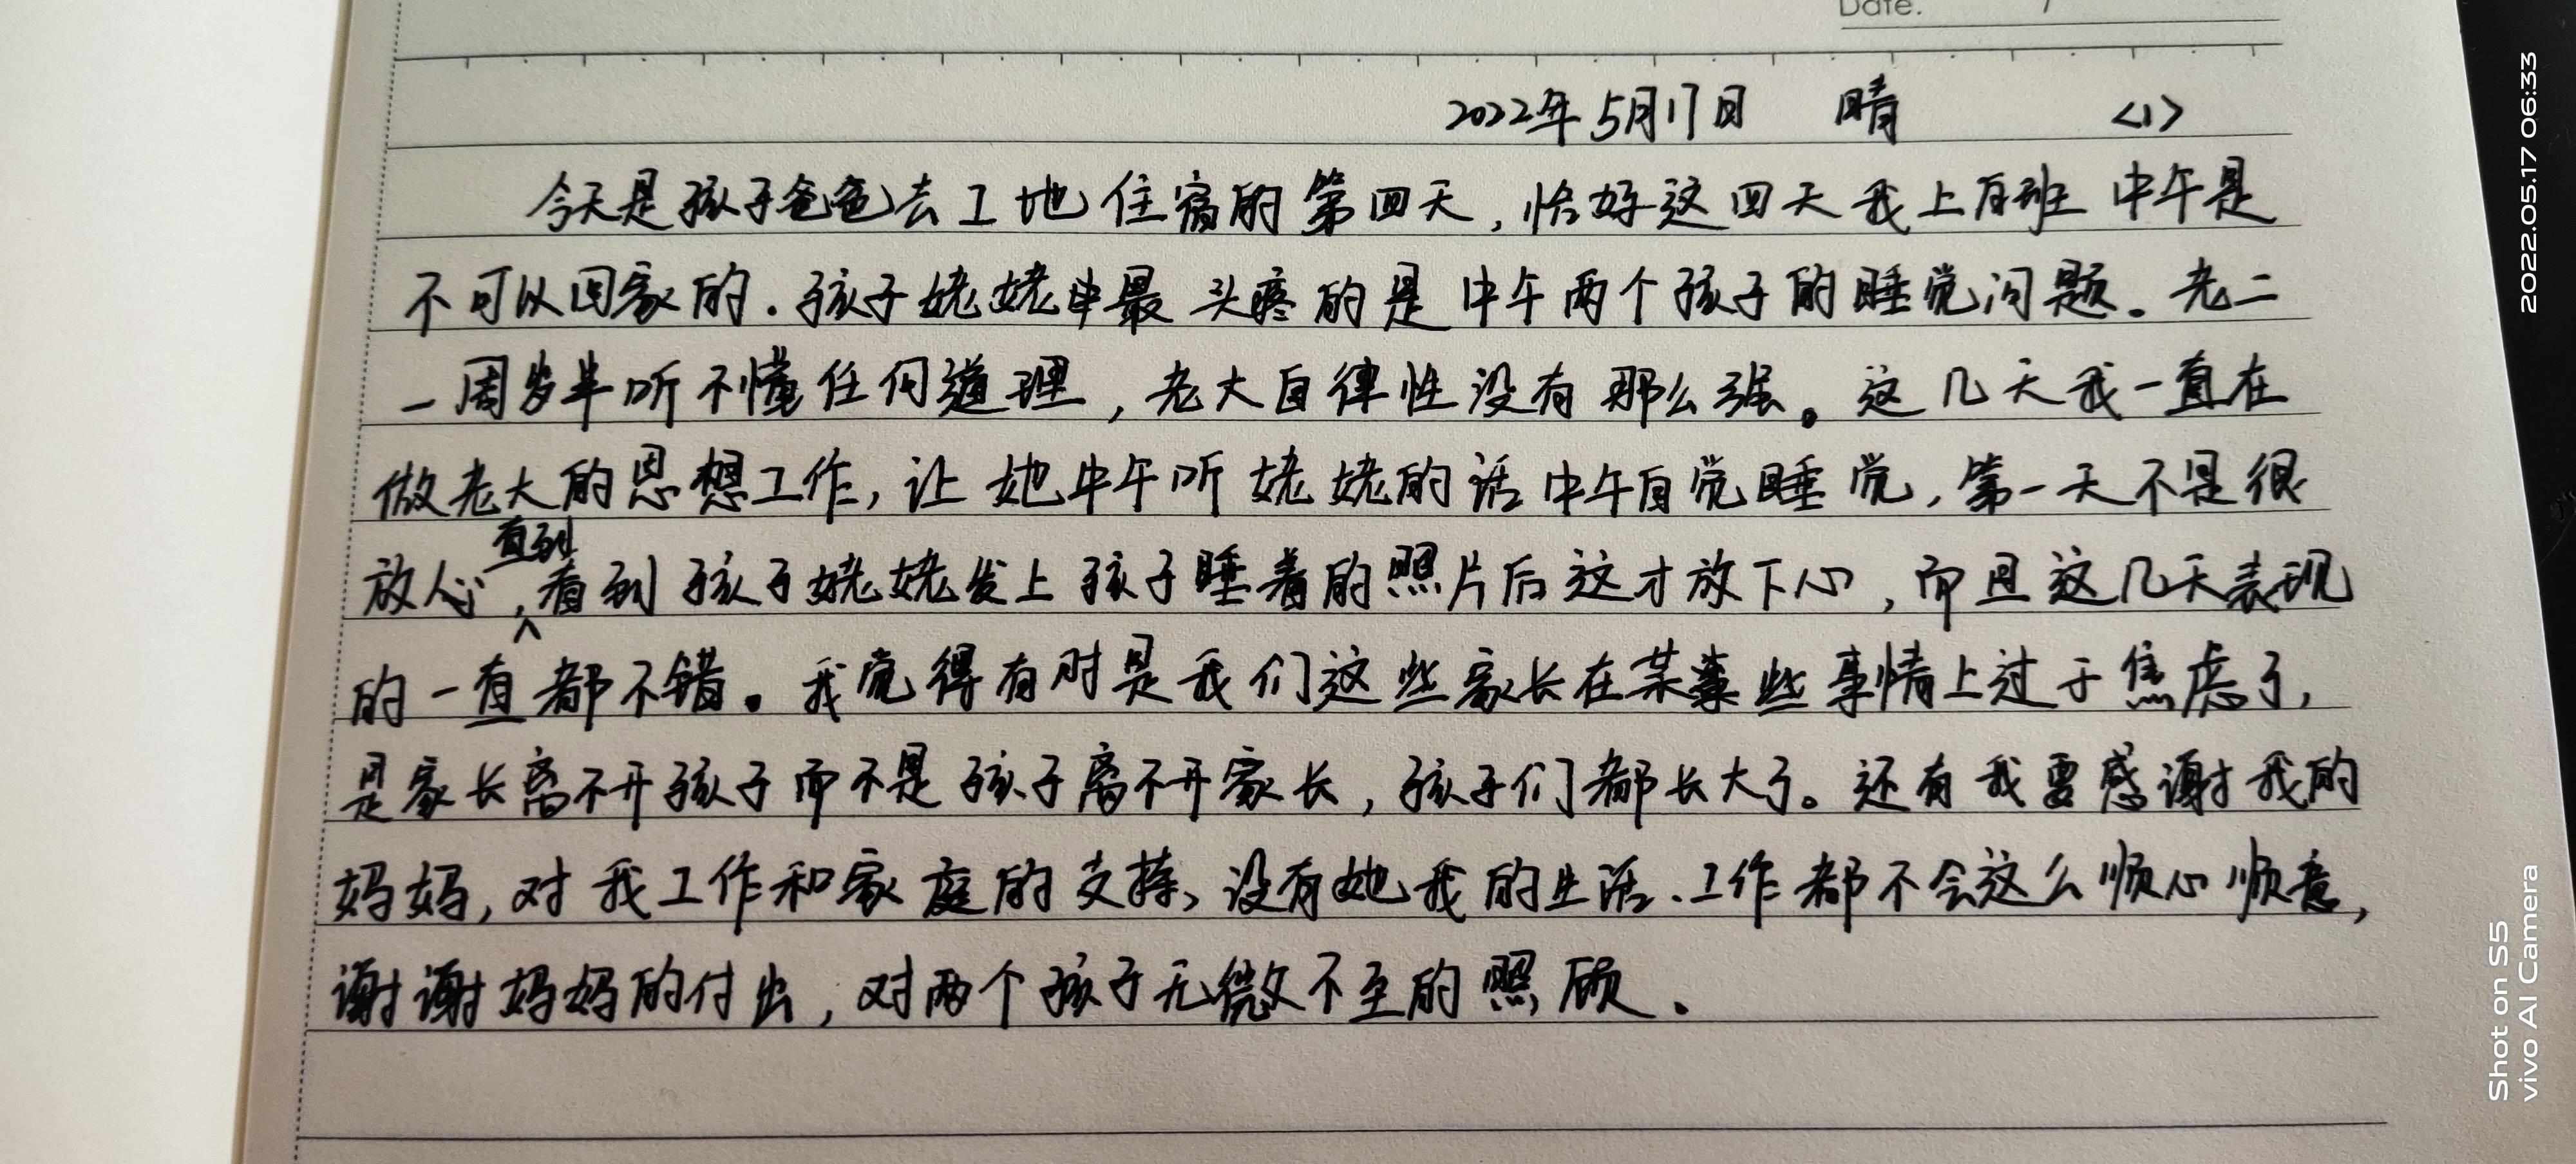 Date: /
2022年5月17日 晴 <1>
今天是孩子爸爸去工地住宿的第四天，恰好这四天我上白班 中午是
不可以回家的．孩子姥姥中最头疼的是中午两个孩子的睡觉问题。老二
一周岁半听不懂任何道理，老大自律性没有那么强。这几天我一直在
做老大的思想工作，让她中午听姥姥的话中午自觉睡觉，第一天不是很
直到
放心，看到孩子姥姥发上孩子睡着的照片后这才放下心，而且这几天表现
的一直都不错。我觉得有时是我们这些家长在某些事情上过于焦虑了，
是家长离不开孩子而不是孩子离不开家长，孩子们都长大了。还有我要感谢我的
妈妈，对我工作和家庭的支持、没有她我的生活、工作都不会这么顺心顺意，
谢谢妈妈的付出，对两个孩子无微不至的照顾．
2022.05.17 06:33
Shot on S5
vivo AI Camera